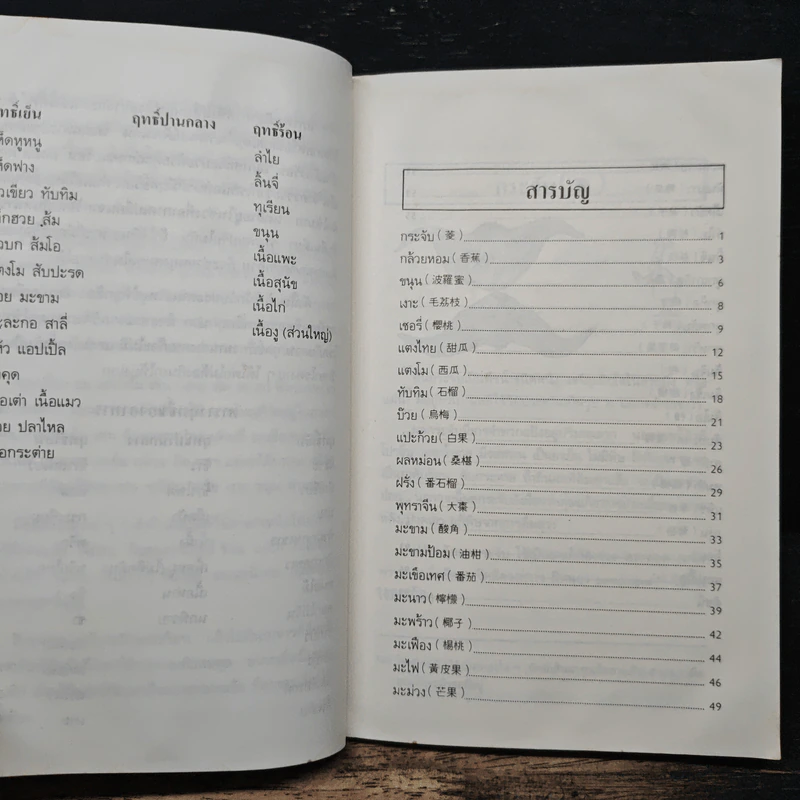 ฤทธิ์ปานกลาง
ฤทธิ์ร้อน
ลำไย
ลิ้นจี่
ทุเรียน
ขนุน
เนื้อแพะ
เนื้อสุนัข
เนื้อไก่
เนื้องู (ส่วนใหญ่)
ทับทิม
ส้ม
ส้มโอ
สับปะรด
มะขาม
สาลี่
แอปเปิ้ล
เนื้อแมว
ปลาไหล
สารบัญ
กระจับ (菱) 1
กล้วยหอม (香蕉) 3
ขนุน (波羅蜜) 6
เงาะ (毛荔枝) 8
เชอรี่ (櫻桃) 9
แตงไทย (甜瓜) 12
แตงโม (西瓜) 15
ทับทิม (石榴) 18
บ๊วย (烏梅) 21
แปะก้วย (白果) 23
ผลหม่อน (桑椹) 26
ฝรั่ง (番石榴) 29
พุทราจีน (大棗) 31
มะขาม (酸角) 33
มะขามป้อม (油柑) 35
มะเขือเทศ (番茄) 37
มะนาว (檸檬) 39
มะพร้าว (椰子) 42
มะเฟือง (楊桃) 44
มะไฟ (黃皮果) 46
มะม่วง (芒果) 49